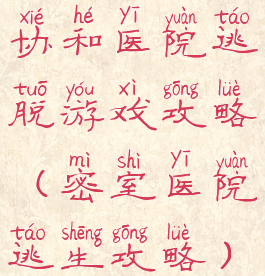 xié hé yī yuàn táo
协和医院逃
tuō yóu xì gōng lüè
脱游戏攻略
mì shì yī yuàn
（密室医院
táo shēng gōng lüè
逃生攻略）